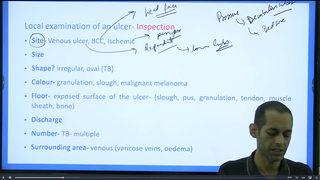 head face
Pressure
Local examination of an ulcer- Inspection
Site- Venous ulcer, BCC, ischemic
lower limbs
Size
Shape? irregular, oval (TB)
Colour- granulation, slough, malignant melanoma
Floor- exposed surface of the ulcer- (slough, pus, granulation, tendon, muscle
sheath, bone)
Discharge
Number- TB- multiple
Surrounding area- venous (varicose veins, oedema)